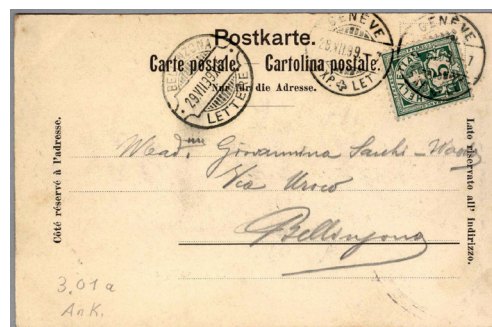 Postkarte.
Carte postale. Cartolina postale.
Nur für die Adresse.
BELLINZONA
29.VII.99
LETTERE
GENÈVE
28.VII.99
LETT
GENÈVE
HELVETIA
Côté réservé à l'adresse.
Lato riservato all' indirizzo.
Mad.me Giovannina
Via
Bellinzona
3.01a
AnK.